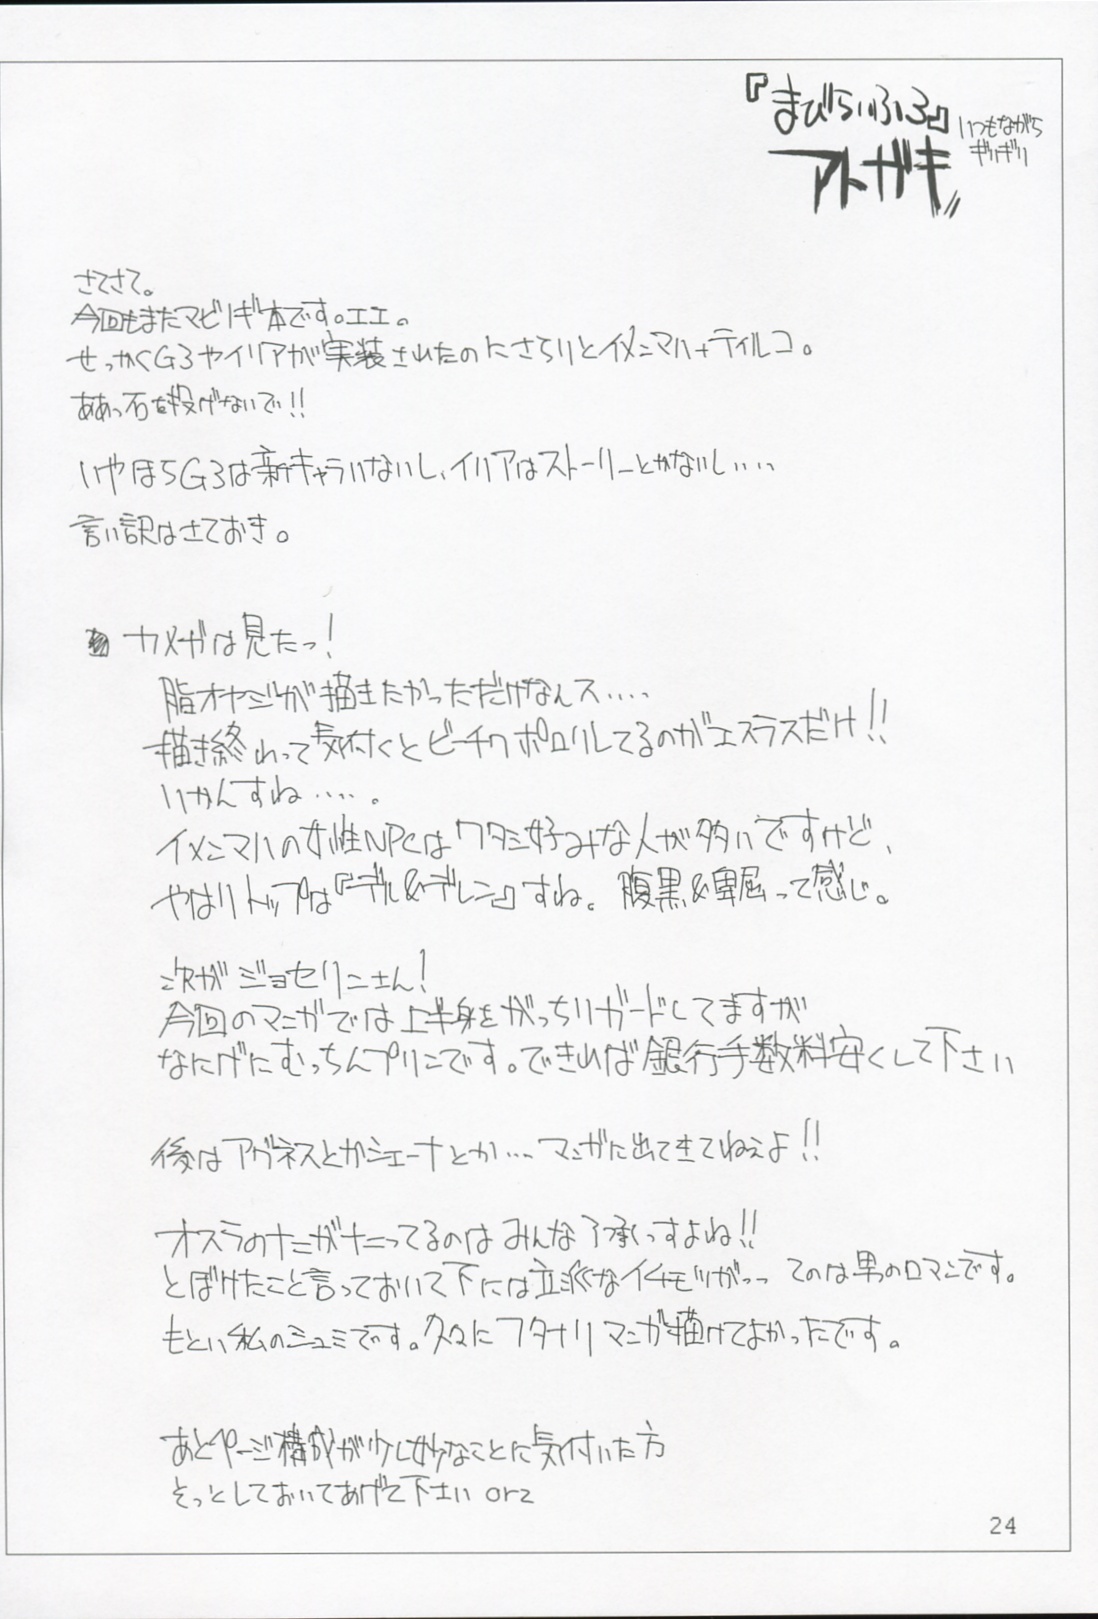 『まびらいふろ』
アトガキ
いつもながら
ギリギリ
さてさて。
今回もまたマビノギ本です。エエ。
せっかくG3やイリアが実装されたのにさらりとイメンマハ+ティルコ。
ああっ石を投げないで!!
いやほらG3は新キャラいないし、イリアはストーリーとかないし‥‥
言い訳はさておき。
カメガは見たっ!
脂オヤジが描きたかっただけなんス‥‥
描き終わって気付くとビーチクポロリしてるのがエスラスだけ!!
いかんすね‥‥。
イメンマハの女性NPCはワタシ好みな人が多いですけど、
やはりトップは『デル&デレン』すね。腹黒&卑屈って感じ。
次がジョセリンさん!
今回のマンガでは上半身をがっちりガードしてますが
なにげにむっちんプリンです。できれば銀行手数料安くして下さい
後はアグネスとかシェーナとか‥‥マンガに出て来てねぇよ!!
オスラのナニがナニってるのはみんな了承っすよね!!
とぼけたこと言っておいて下には立派なイチモツがっっ てのは男のロマンです。
もとい私のシュミです。久々にフタナリマンガ描けてよかったです。
あとページ構成が少し妙なことに気付いた方
そっとしておいてあげて下さい orz
24